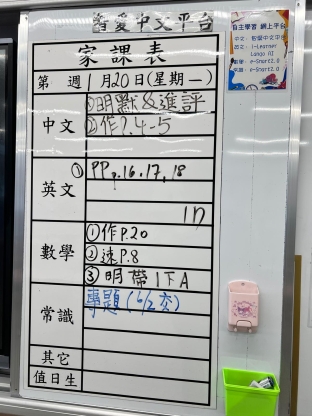 智愛中文平台
家課表
第 週 1月20日(星期一)
中文
①明默&進評
②作P.4-5
英文
① PP p.16,17,18
1n
數學
①作P.20
②速P.8
③明帶1下A
常識
專題(6/2交)
其它
值日生
自主學習 網上平台
中文：智愛中文平台
英文：i-Learner
數學：e-Smart2.0
常識：e-Smart2.0